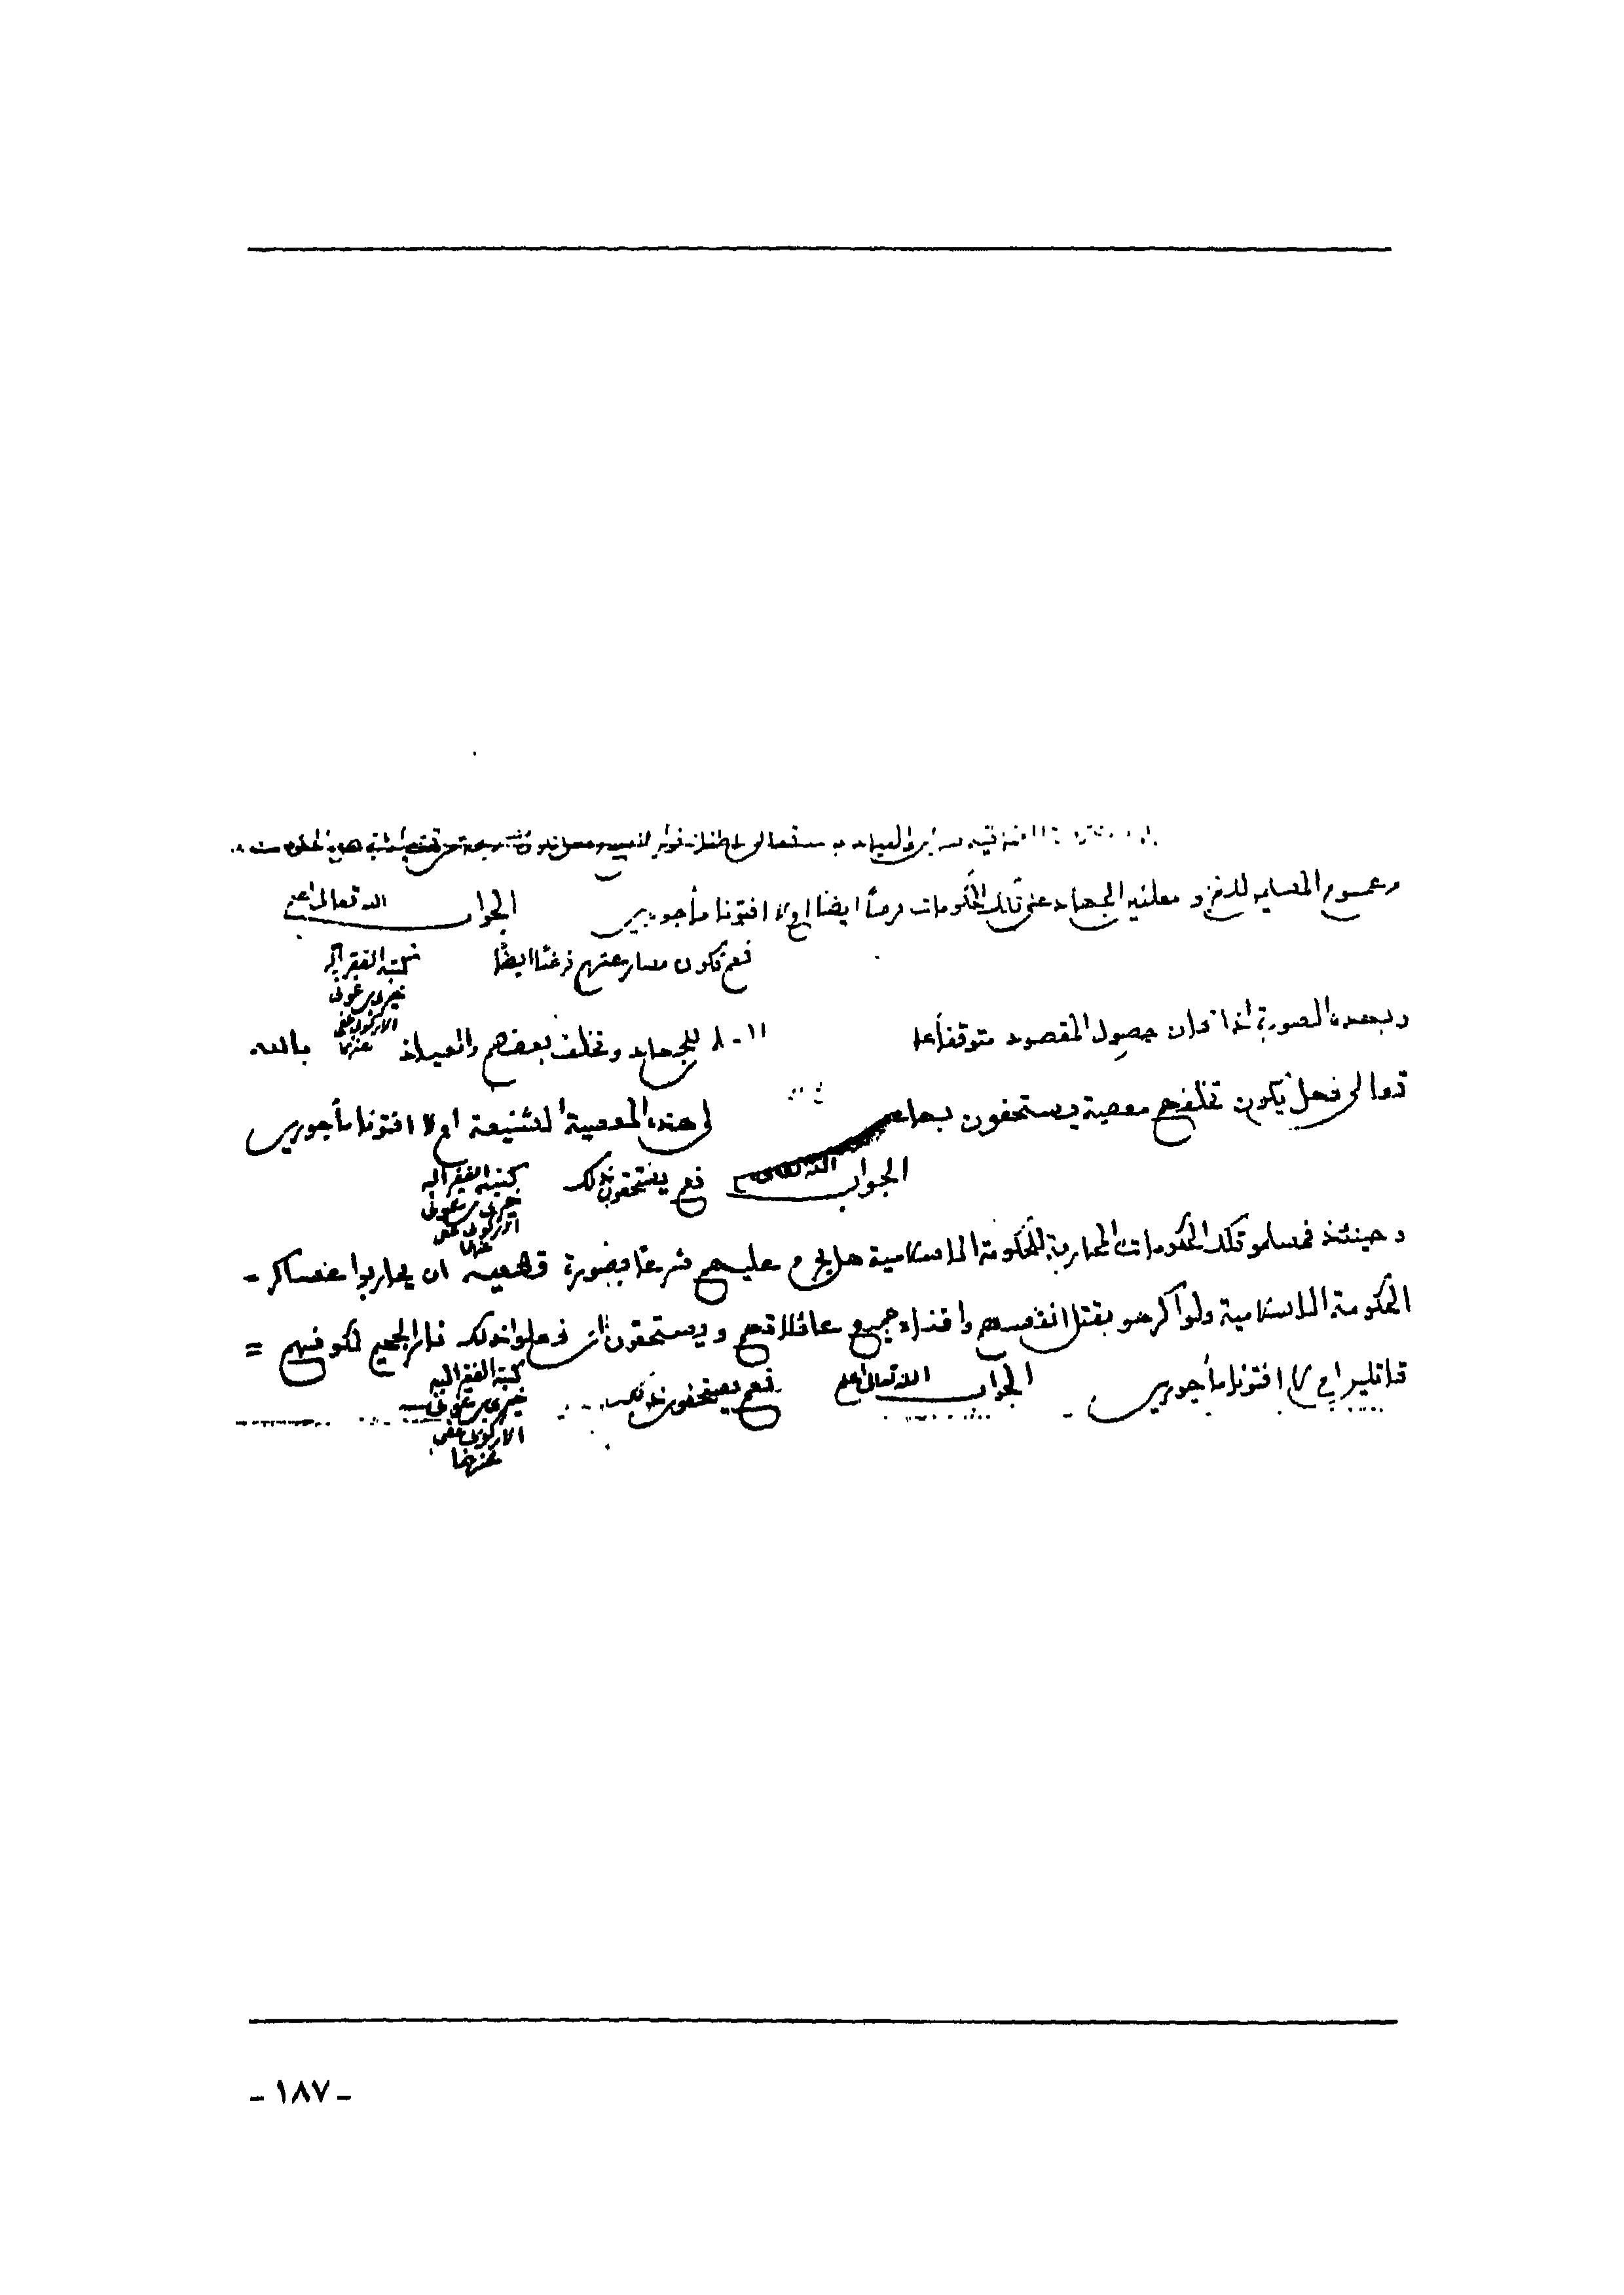 وعموم المسلمين للغزو معلنين الجهاد على تلك الحكومات فرضاً ايضا ام لا افتونا مأجورين الجواب الله تعالى اعلم
نعم تكون مسارعتهم فرضًا ايضًا كتبه الفقير اليه
خيرى بن عونى
الاركوبى عفى
عنهما
وبهذه الصورة اذا كان حصول المقصود متوقفاً على للجهاد وتخلف بعضهم والعياذ بالله
تعالى فهل يكون تخلفهم معصية ويستحقون بها هذه المعصية الشنيعة ام لا افتونا مأجورين
الجواب الله تعالى اعلم نعم يستحقون ذلك كتبه الفقير اليه
خيرى بن عونى
الاركوبى عفى
عنهما
وحينئذ فمسلمو تلك الحكومات المحاربة للحكومة الاسلامية هل يحرم عليهم شرعًا بصورة قطعية ان يحاربوا عساكر -
الحكومة الاسلامية ولو اكرهو بقتل انفسهم وافناء جميع عائلاتهم ويستحقون ان فعلوا ذلك نار الجحيم لكونهم =
قاتلين ام لا افتونا مأجورين الجواب الله تعالى اعلم نعم يستحقون ذلك كتبه الفقير اليه
خيرى بن عونى
الاركوبى عفى
عنهما
- ١٨٧ -